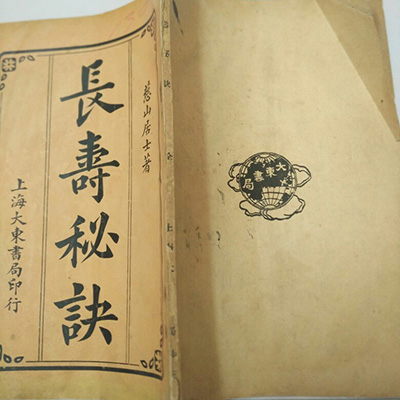 憨山居士著
長壽秘訣
上海大東書局印行
大東書局